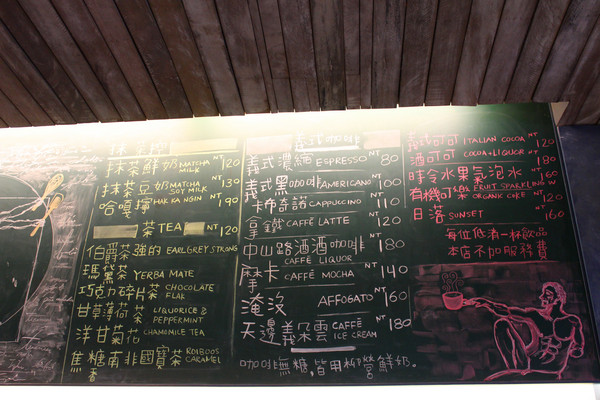 抹茶鮮奶 MATCHA MILK NT 120
抹茶豆奶 MATCHA SOY MILK NT 130
哈嘎擰 HAK KA NGIN NT 90
茶 TEA NT 120
伯爵茶 強的 EARLGREY STRONG
瑪黛茶 YERBA MATE
巧克力碎片茶 CHOCOLATE FLAK
甘草薄荷茶 LIQUORICE & PEPPERMINT
洋甘菊花 CHAMOMICE TEA
焦糖南非國寶茶 ROIBOOS CARAMEL
義式咖啡
義式濃縮 ESPRESSO NT 80
義式黑咖啡 AMERICANO NT 100
卡布奇諾 CAPPUCCINO NT 110
拿鐵 CAFFÉ LATTE NT 120
中山路酒酒咖啡 CAFFÉ LIQUOR NT 180
摩卡 CAFFÉ MOCHA NT 140
淹沒 AFFOGATO NT 160
天邊一朵雲 CAFFÉ ICE CREAM NT 180
咖啡無糖,皆用柳營鮮奶。
義式可可 ITALIAN COCOA NT 120
酒可可 COCOA+LIQUOR NT 180
時令水果氣泡水 FRUIT SPARKLING W NT 160
有機可樂 ORGANIC COKE NT 120
日落 SUNSET NT 160
每位低消一杯飲品
本店不加服務費